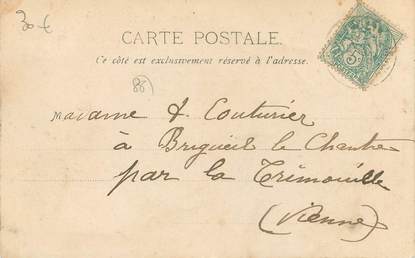 30 €
CARTE POSTALE.
Ce côté est exclusivement réservé à l'adresse.
(86)
Madame F. Couturier
à Brigueil le Chantre
par la Trimouille
(Vienne)